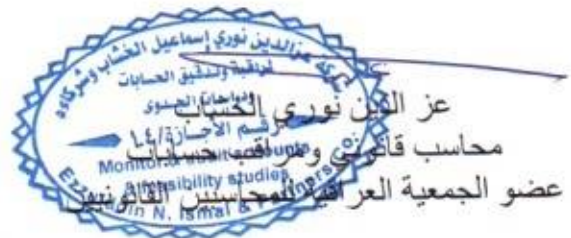 شركة عزالدين نوري إسماعيل الخشاب وشركاءه
لمراقبة وتدقيق الحسابات
ودراسات الجدوى
رقم الأجازة/١٠٤
Monitor
accounts
feasibility studies
N. Ismal &
عز الدين نوري الخشاب
محاسب قانوني ومراقب حسابات
عضو الجمعية العراقية للمحاسبين القانونيين